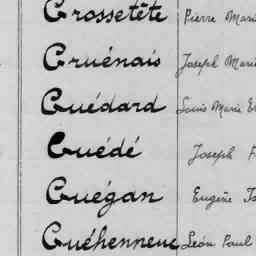 Grossetête Pierre Marie
Gruénais Joseph Marie
Guédard Louis Marie
Guédé Joseph
Guégan Eugène
Guéhenneuc Léon Paul